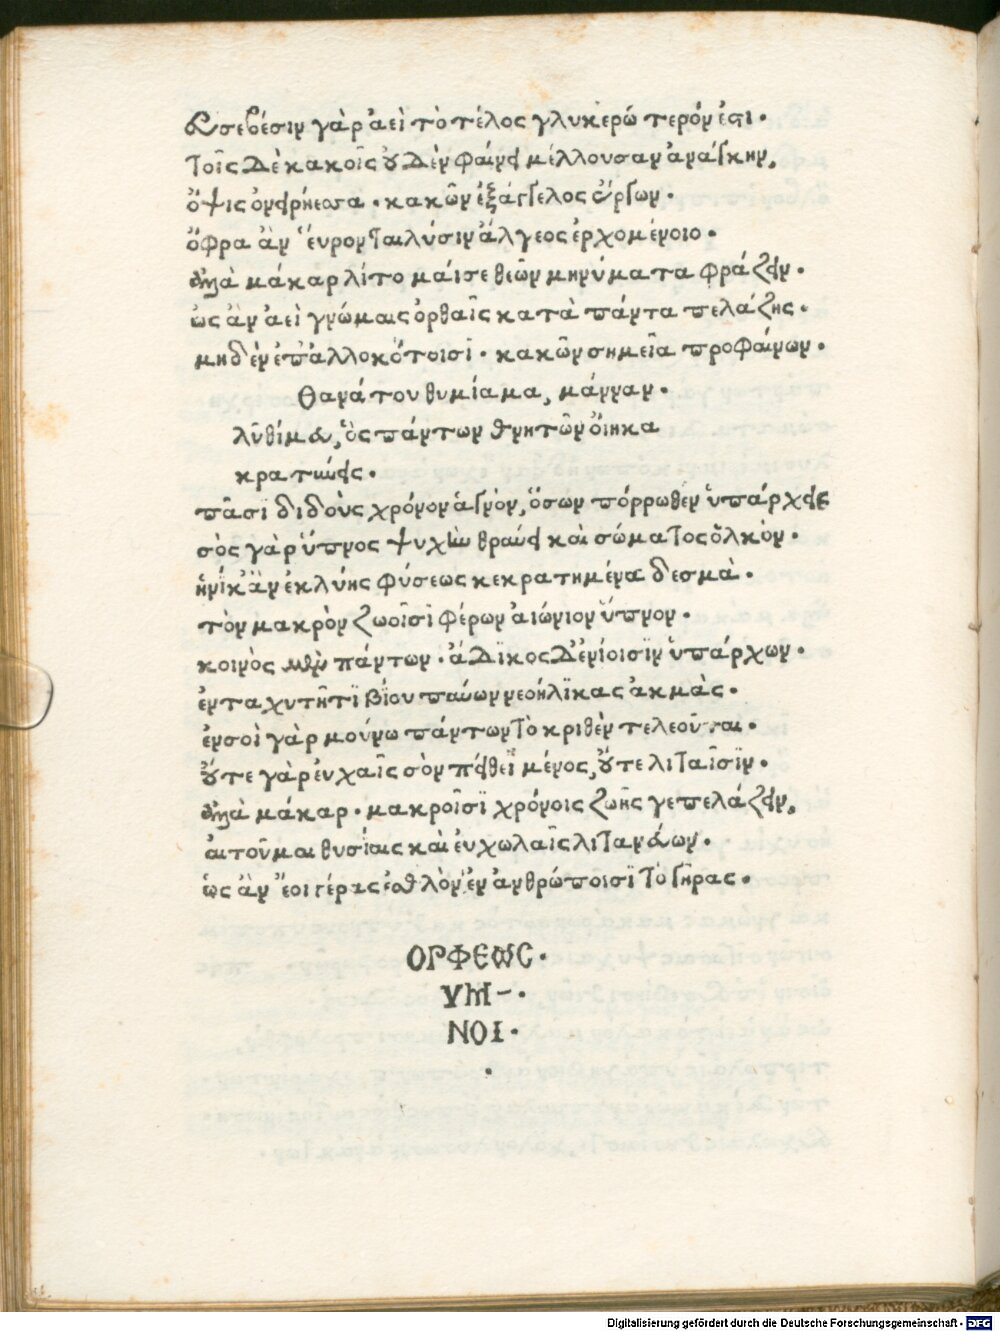 εὐσεβέσιν γὰρ ἀεὶ τὸ τέλος γλυκερώτερόν ἐστι·
τοῖς δὲ κακοῖς οὐδὲν φαίνει μέλλουσαν ἀνάγκην,
ὄψις ὀνειρήεσσα· κακῶν ἐξάγγελος ἔργων·
ὄφρα ἂν εὕρονται λύσιν ἄλγεος ἐρχομένοιο·
ἀλλὰ μάκαρ λίτομαί σε θεῶν μηνύματα φράζειν·
ὡς ἂν ἀεὶ γνώμαις ὀρθαῖς κατὰ πάντα πελάζης·
μηδὲν ἐπ' ἀλλοκότοισι· κακῶν σημεῖα προφαίνων·
θανάτου θυμίαμα, μάνναν·
λῦθί μευ, ὃς πάντων θνητῶν οἴηκα
κρατύνεις·
πᾶσι διδοὺς χρόνον ἁγνὸν, ὅσων πόρρωθεν ὑπάρχεις
σὸς γὰρ ὕπνος ψυχὴν θραύει καὶ σώματος ὁλκὸν·
ἡνίκ' ἂν ἐκλύης φύσεως κεκρατημένα δεσμὰ·
τὸν μακρὸν ζωοῖσι φέρων αἰώνιον ὕπνον·
κοινὸς μὲν πάντων· ἄδικος δ' ἐνίοισιν ὑπάρχων·
ἐν ταχυτῆτι βίου παύων νεοήλικας ἀκμὰς·
ἐν σοὶ γὰρ μούνω πάντων τὸ κριθὲν τελεοῦται·
οὔτε γὰρ εὐχαῖς σὸν πείθει μένος, οὔτε λιταῖσιν·
ἀλλὰ μάκαρ· μακροῖσι χρόνοις ζωῆς γε πελάζειν,
αἰτοῦμαι θυσίαις καὶ εὐχωλαῖς λιτανεύων·
ὡς ἂν ἔοι γέρας ἐσθλὸν ἐν ἀνθρώποισι τὸ γῆρας·
ΟΡΦΕΩΣ·
ΥΜ-·
ΝΟΙ·
Digitalisierung gefördert durch die Deutsche Forschungsgemeinschaft - DFG